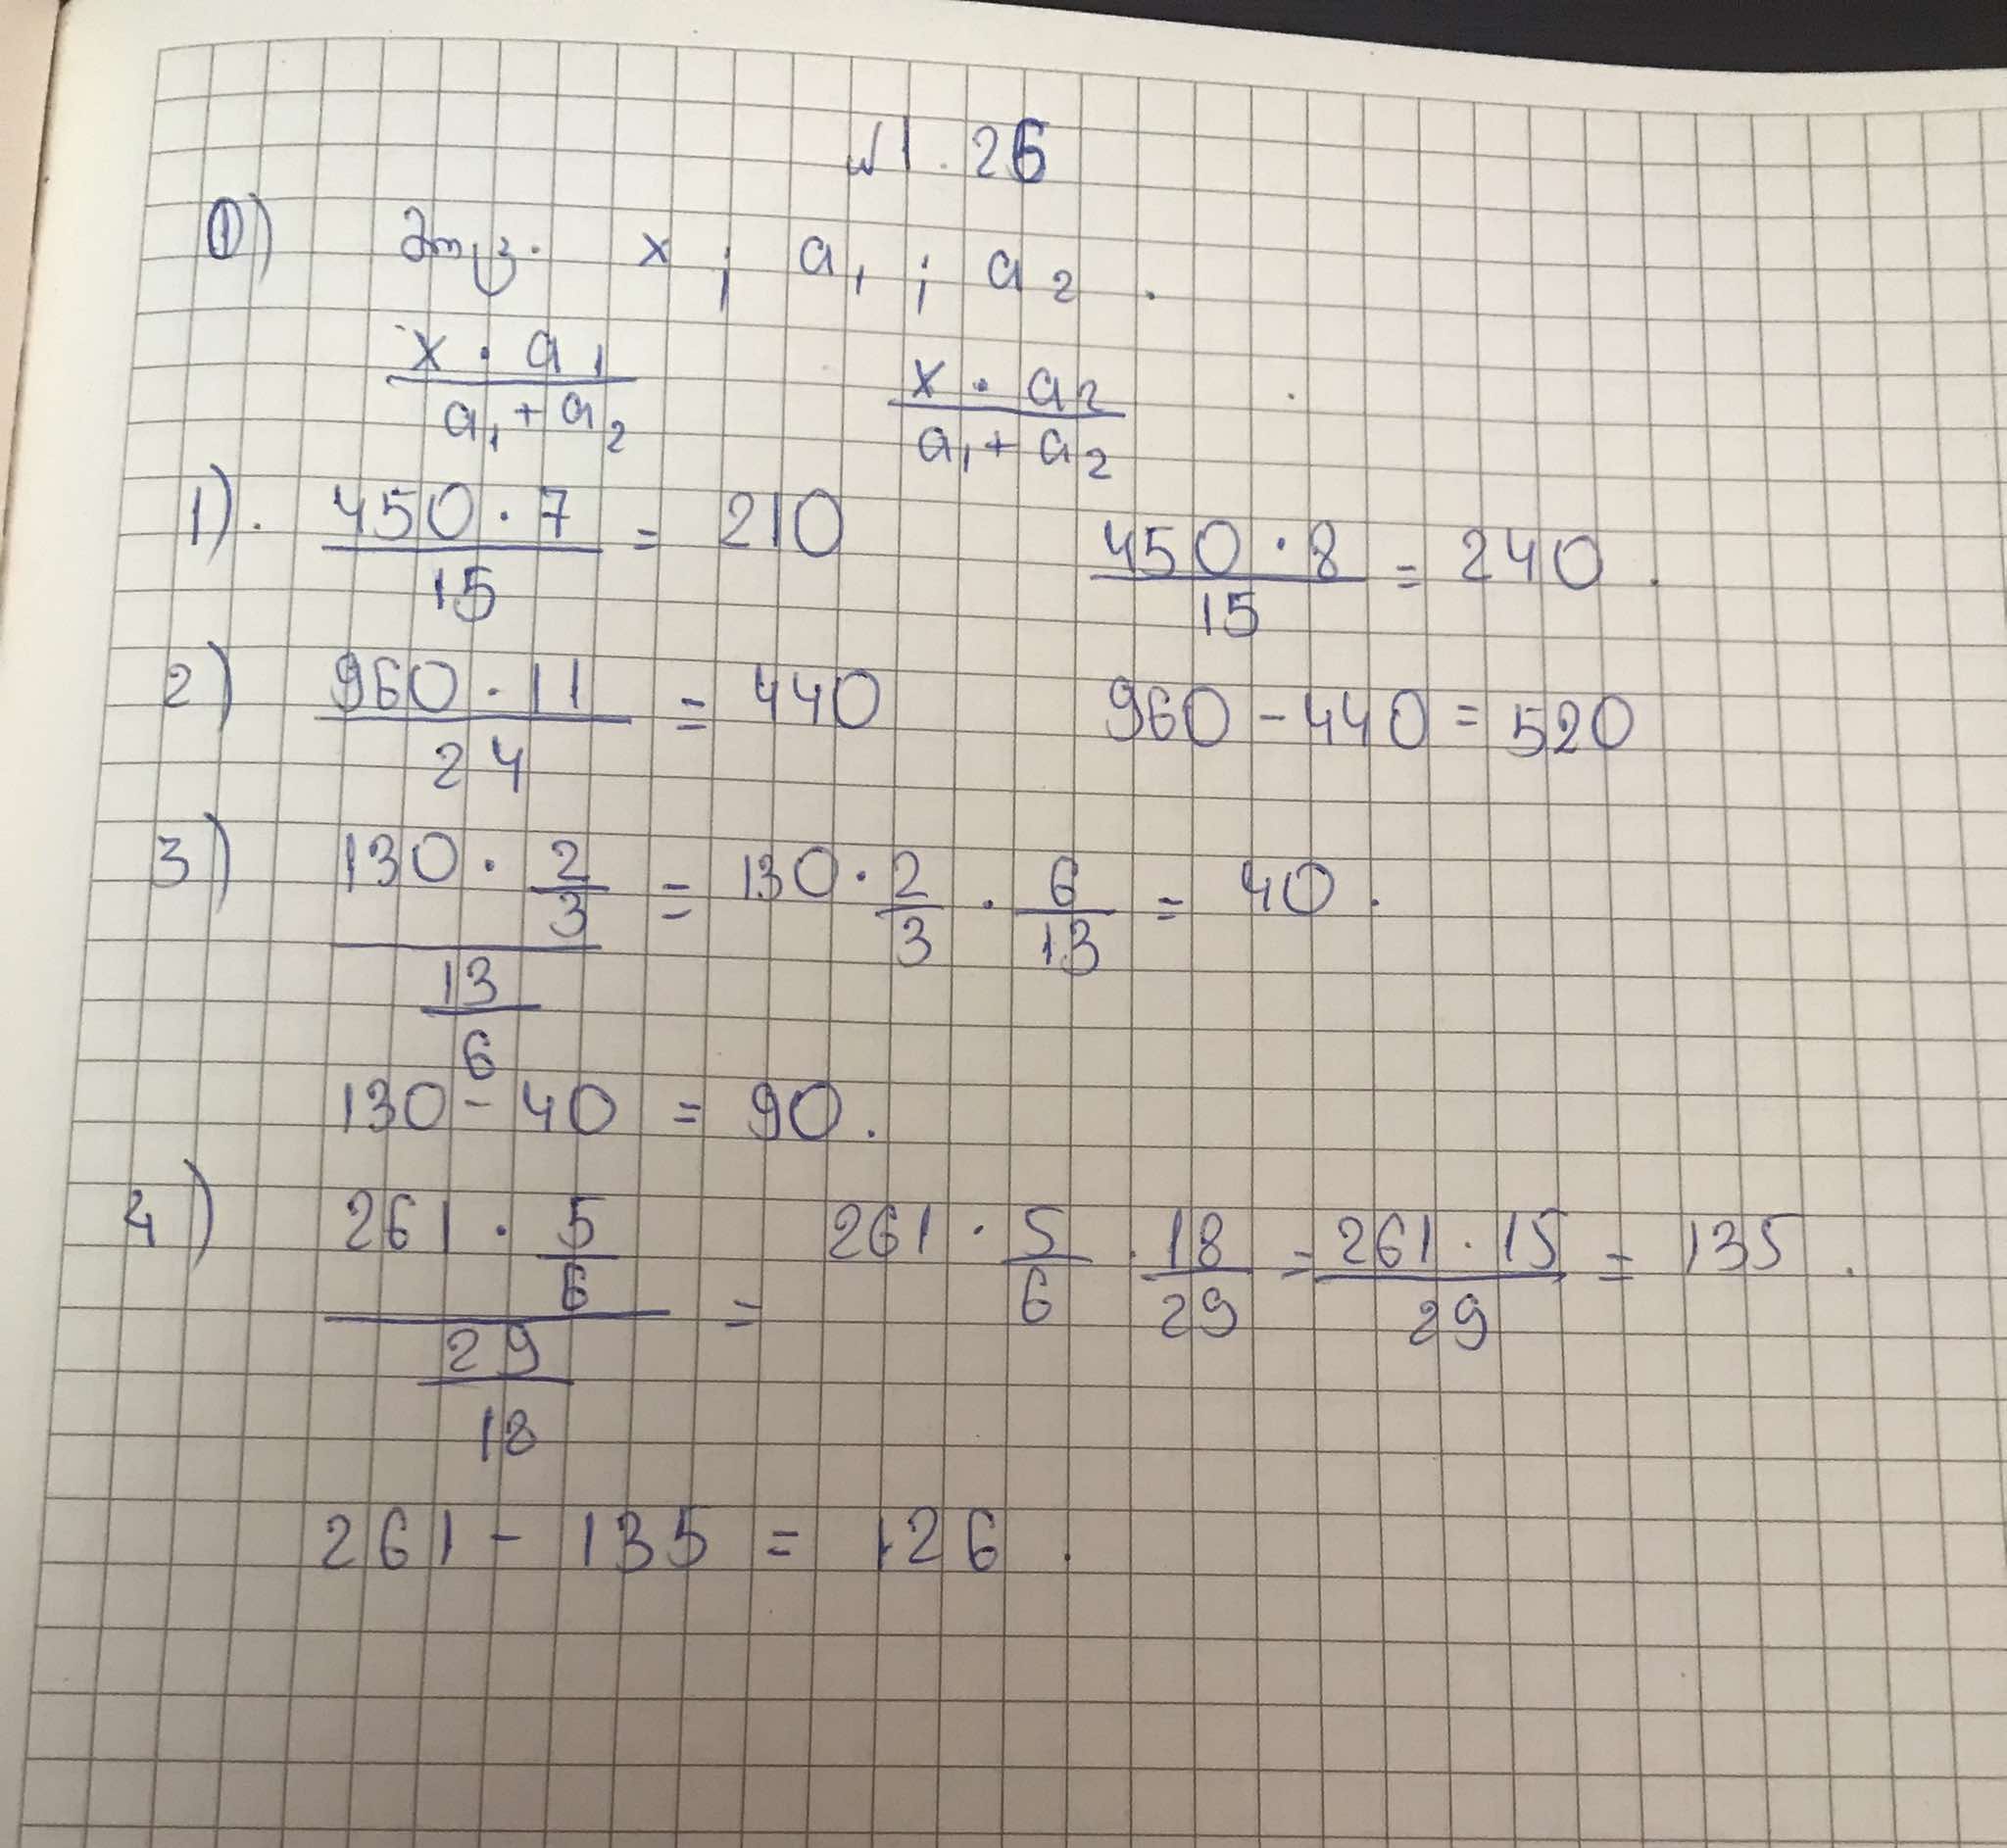 №1.26
①) x ; a₁ ; a₂ .
x · a₁ / a₁ + a₂   x · a₂ / a₁ + a₂
1). 450 · 7 / 15 = 210   450 · 8 / 15 = 240 .
2) 960 · 11 / 24 = 440   960 - 440 = 520
3) 130 · 2/3 / 13/6 = 130 · 2/3 · 6/13 = 40 .
130 - 40 = 90 .
4) 261 · 5/6 / 29/18 = 261 · 5/6 · 18/29 = 261 · 15 / 29 = 135 .
261 - 135 = 126 .